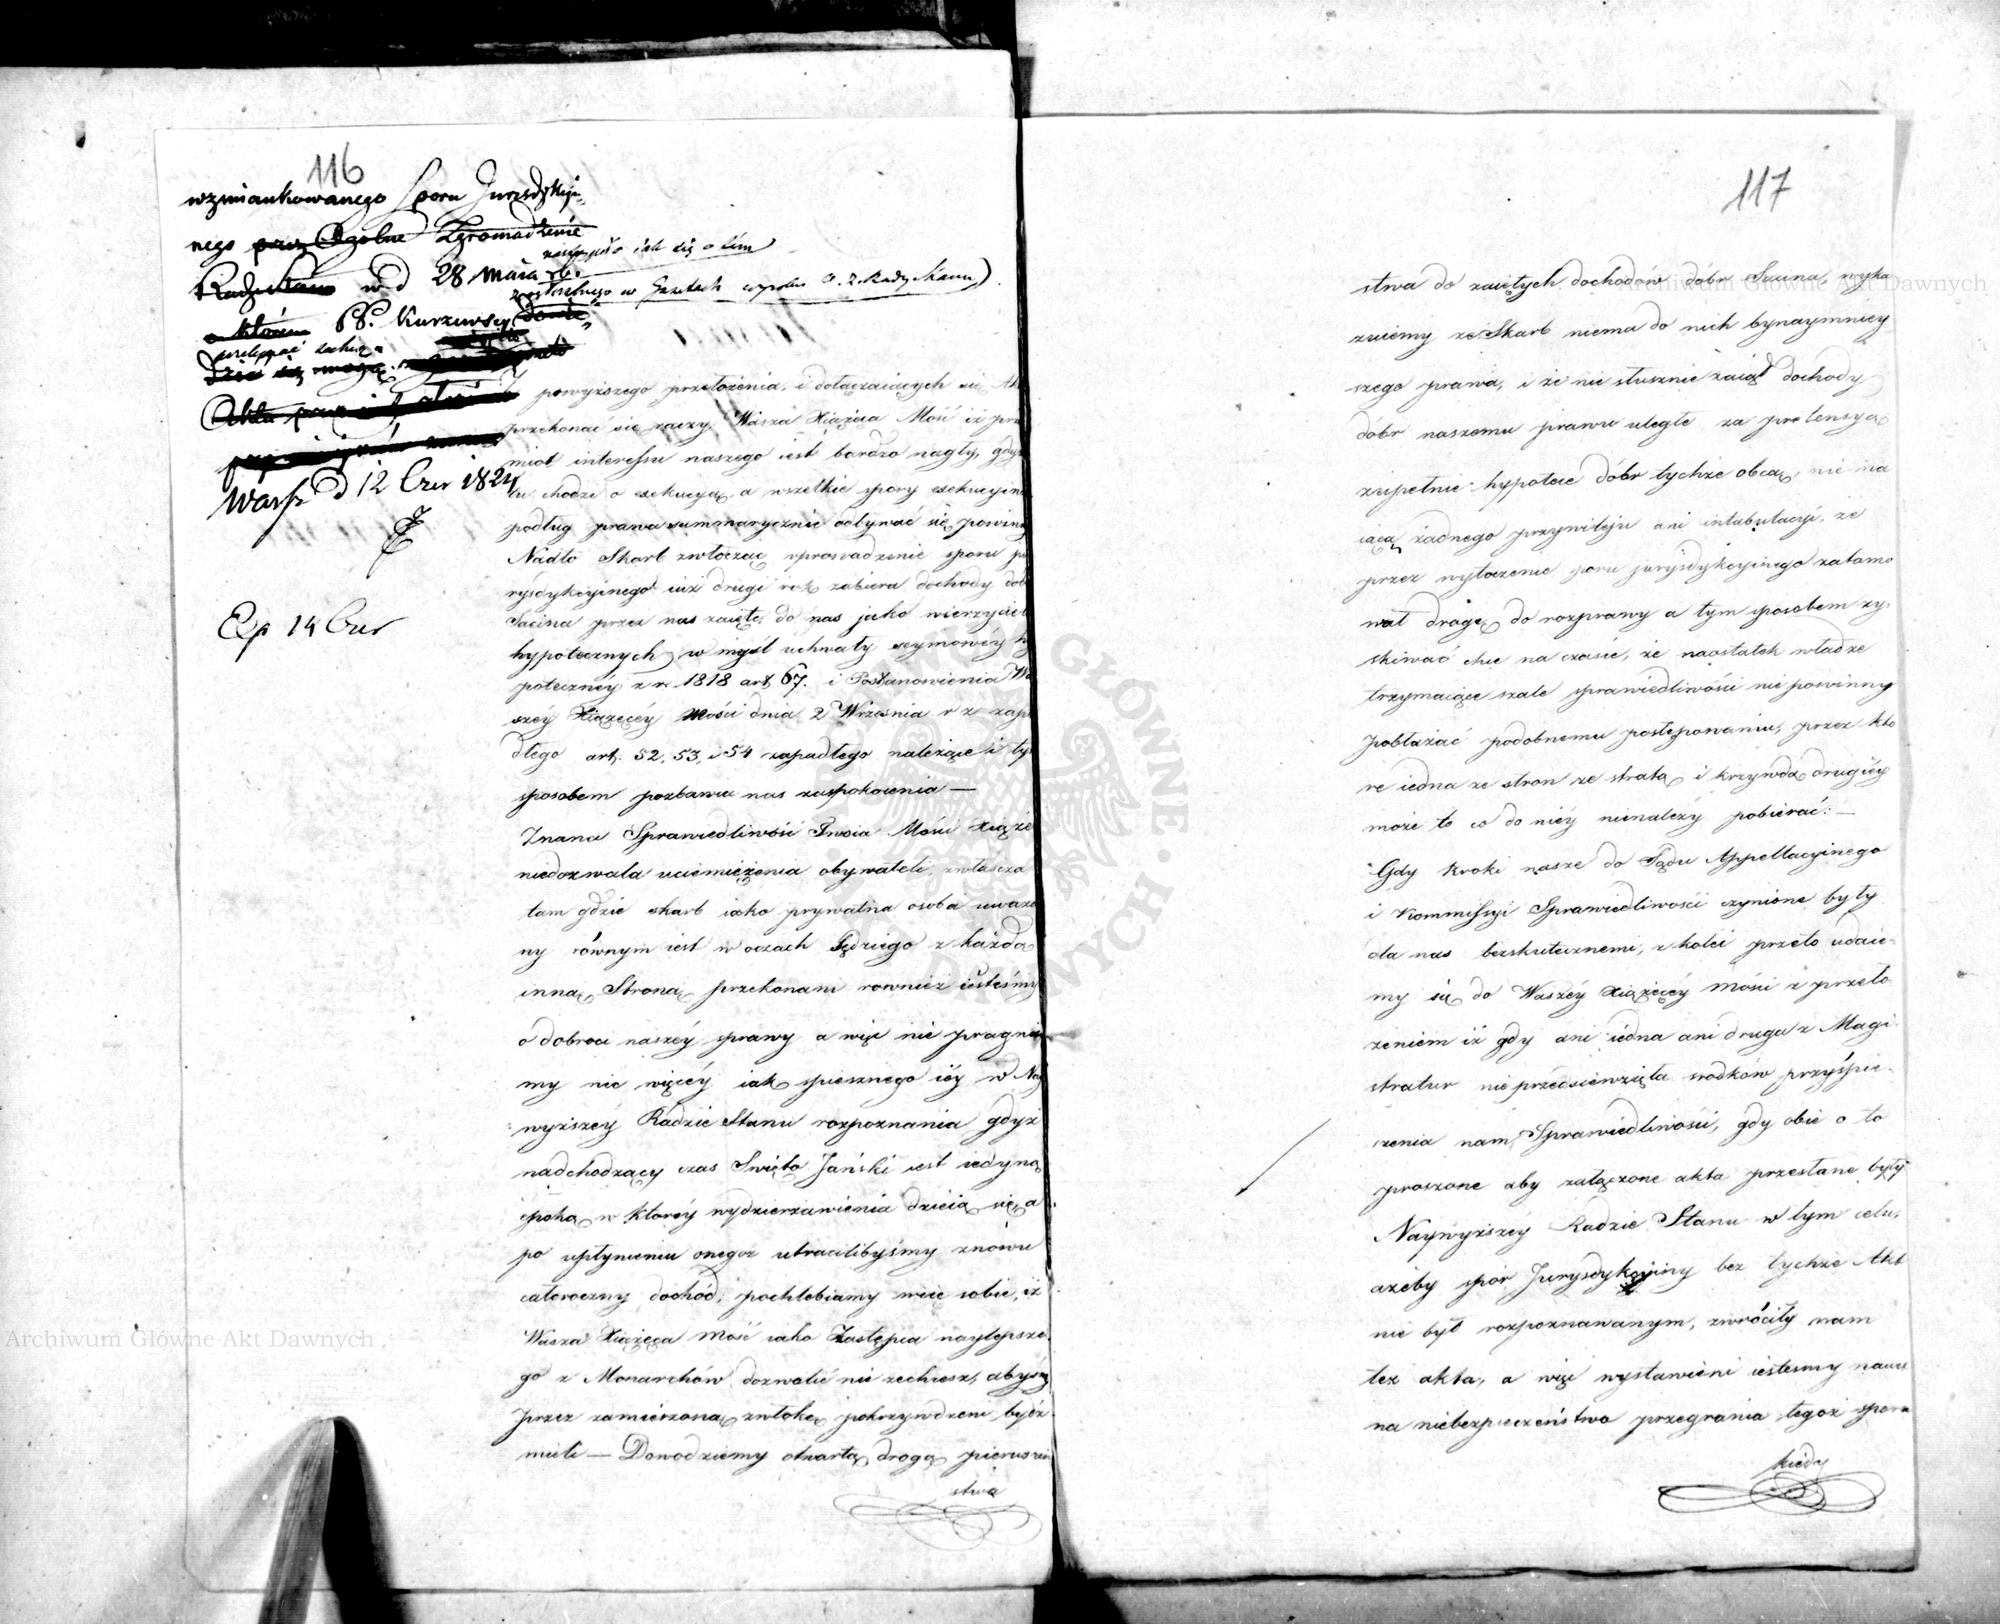 116
wzmiankowanego Sporu Jurysdykcyi-
nego przez Ogólne Zgromadzenie
nastąpiło jak się o tém
Rady Stanu w d 28 maia rb.
z ogłoszonego w Gazetach wyroku O. Z. Rady Stanu).
o którém PP. Kurzewscy
dzieć się mogą
Warsz d 12 Czer 1824
Exp 14 Czer
powyższego przełożenia, i dołączaiących się Ak
przekonać się raczy Wasza Xiążęca Mość iż prze
miot interessu naszego iest bardzo nagły, gdyż
tu chodzi o exekucyą, a wszelkie spory exekucyine
podług prawa summarycznie odbywać się powinny
Nadto Skarb zwłocząc wprowadzenie sporu ju
rysdykcyinego iuż drugi rok zabiera dochody dóbr
Sacina przez nas zaięte, do nas jako wierzycieli
hypotecznych w myśl uchwały seymowéy hy
potecznéy z r. 1818 art 67. i Postanowienia Wa
széy Xiążęcéy Mości dnia 2 Września r z zapa
dłego art: 52, 53, i 54 zapadłego należące i tym
sposobem pozbawia nas zaspokoienia —
Znana Sprawiedliwość Twoia Mości Xiąże
niedozwala uciemiężenia obywateli, zwłaszcza
tam gdzie skarb iako prywatna osoba uważa
ny równym iest w oczach Sędziego z każdą
inną Stroną, przekonani rownież iesteśmy
o dobroci naszéy sprawy a więc nie pragnie
my nic więcéy iak spiesznego iéy w Nay
wyższéy Radzie Stanu rozpoznania gdyż
nadchodzący czas Swięto Jański iest iedyną
epoką w któréy wydzierzawienia dzieią się, a
po upłynieniu onegoż utracilibyśmy znowu
całoroczny dochód; pochlebiamy więc sobie, iż
Wasza Xiążęca Mość iako Zastępca naylepsze
go z Monarchów dozwolić nie zechcesz, abyśmy
przez zamierzoną zwłokę pokrzywdzeni bydź
mieli — Dowodziemy otwartą drogą pierwszeń
stwa
117
stwa do zaiętych dochodów dóbr Sacina, wyka
zuiemy że Skarb niema do nich bynaymniey
szego prawa, i że nie słusznie zaiął dochody
dóbr naszemu prawu uległe za pretensyą
zupełnie hypotece dóbr tychże obcą, nie ma
iącą żadnego przywileju ani intabulacyi, że
przez wytoczenie sporu jurysdykcyinego zatamo
wał drogę do rozprawy a tym sposobem zy-
skiwać chce na czasie, że naostatek władze
trzymaiące szale sprawiedliwości nie powinny
pobłażać podobnemu postępowaniu, przez któ
re iedna ze stron ze stratą i krzywdą drugiéy
może to co do niéy nienależy pobierać: —
Gdy kroki nasze do Sądu Appellacyinego
i Kommissyi Sprawiedliwości czynione były
dla nas bezskutecznemi, z kolei przeto udaie-
my się do Waszéy Xiążęcéy Mości z przeło
żeniem iż gdy ani iedna ani druga z Magi-
stratur nieprzedsiewzięła srodków przyśpie-
szenia nam Sprawiedliwości, gdy obie o to
proszone aby załączone akta przesłane były
Naywyższéy Radzie Stanu w tym celu,
ażeby spór Jurysdykcyiny bez tychże Akt
nie był rozpoznawanym, zwróciły nam
też akta, a więc wystawieni iestesmy nawet
na niebezpieczeństwo przegrania tegoż sporu
kiedy
Archiwum Główne Akt Dawnych
Archiwum Główne Akt Dawnych